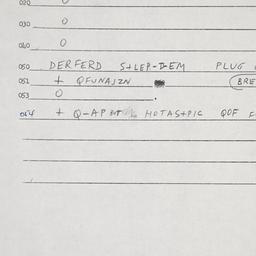 020
030 0
040 0
050 DERFERD S+LEP-D-EM PLUG
051 + QFUNAJZN BRE
053 0
054 + Q-AP HOTAS+PIC QOF